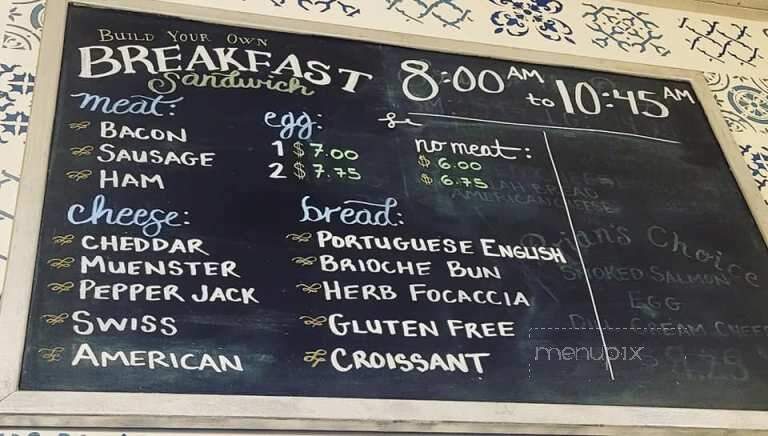 BUILD YOUR OWN
BREAKFAST
Sandwich
8:00 AM
to 10:45 AM
meat:
BACON
SAUSAGE
HAM
egg:
1 $7.00
2 $7.75
no meat:
$6.00
$6.75
cheese:
CHEDDAR
MUENSTER
PEPPER JACK
SWISS
AMERICAN
bread:
PORTUGUESE ENGLISH
BRIOCHE BUN
HERB FOCACCIA
GLUTEN FREE
CROISSANT
BREAD
AMERICAN CHEESE
Brian's Choice
SMOKED SALMON
EGG
DILL CREAM CHEE
menupix